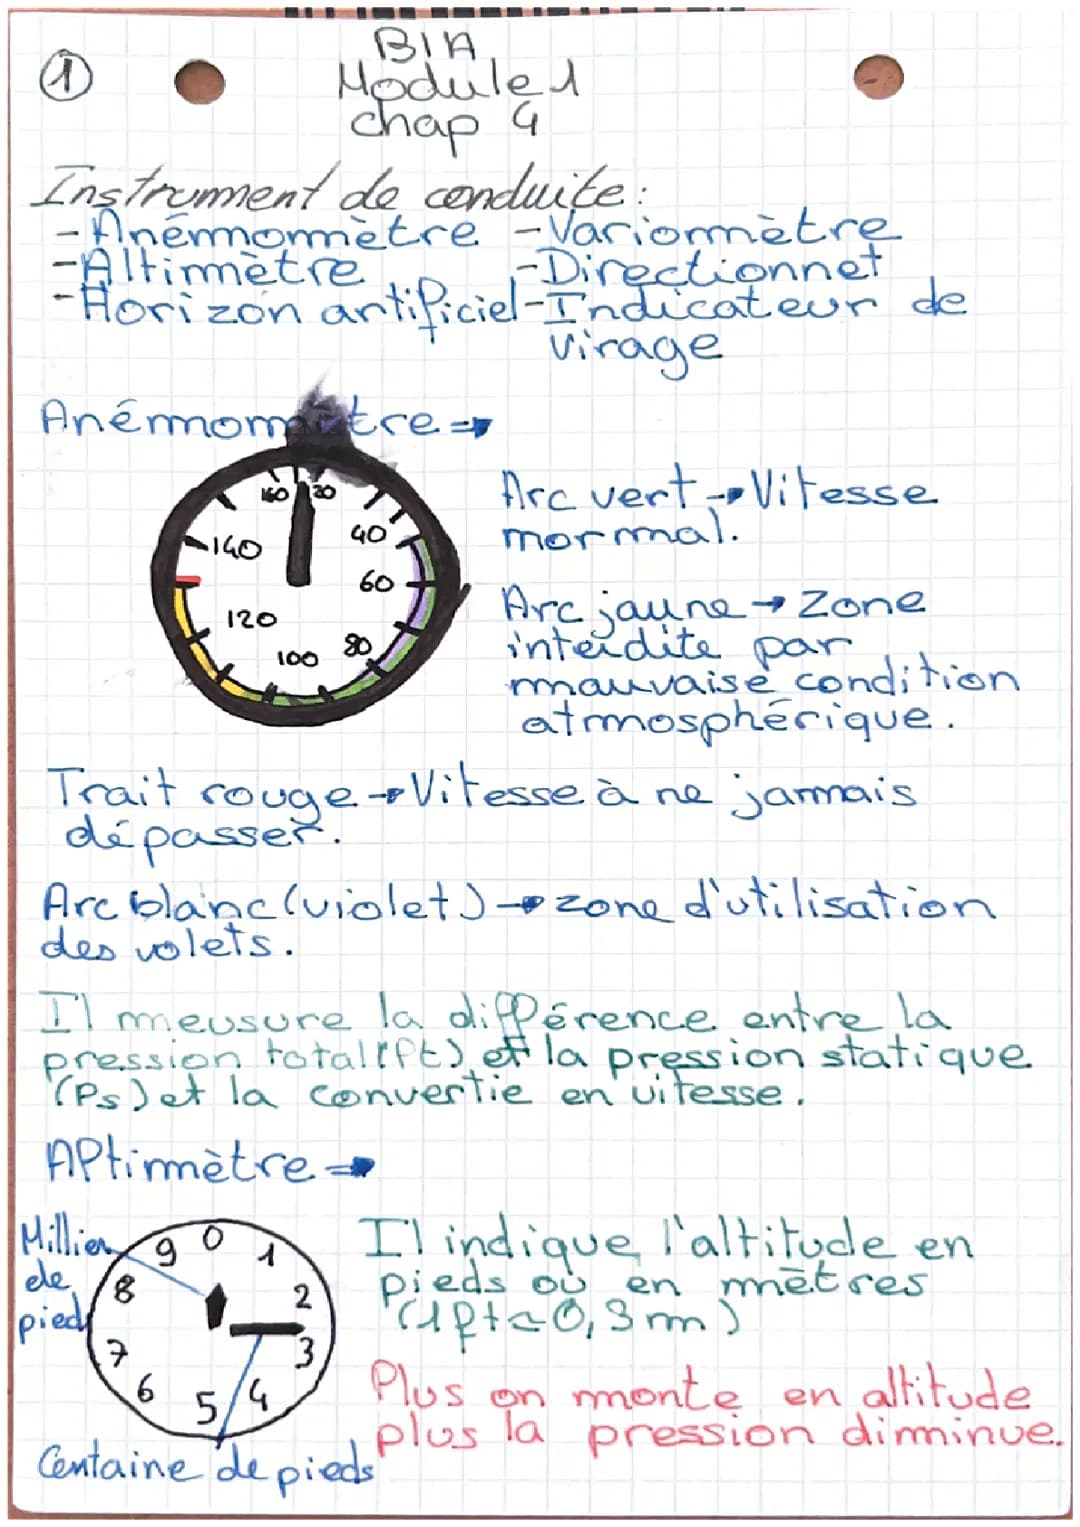 1
BIA
Module 1
chap 4
Instrumment de conduite:
-Anémmommètre -Variommètre
-Altimmètre -Directionnet
-Horizon artificiel -Indicateur de
virage
Anémmommètre →
160 20
140 40
60
120
100 80
Arc vert → Vitesse
mormmal.
Arc jaune → Zone
interdite par
mmauvaise condition
atmmosphérique.
Trait rouge → Vitesse à ne jammais
dépasser.
Arc blanc (violet) → zone d'utilisation
des volets.
Il mmeusure la différence entre la
pression total (Pt) et la pression statique
(Ps) et la convertie en vitesse.
Altimmètre →
Millier
de
pied
0
9 1
8 2
7 3
6 5 4
Centaine de pieds
Il indique l'altitude en
pieds où en mmètres
(1ft≃0,3mm)
Plus on mmonte en altitude
plus la pression dimminue.